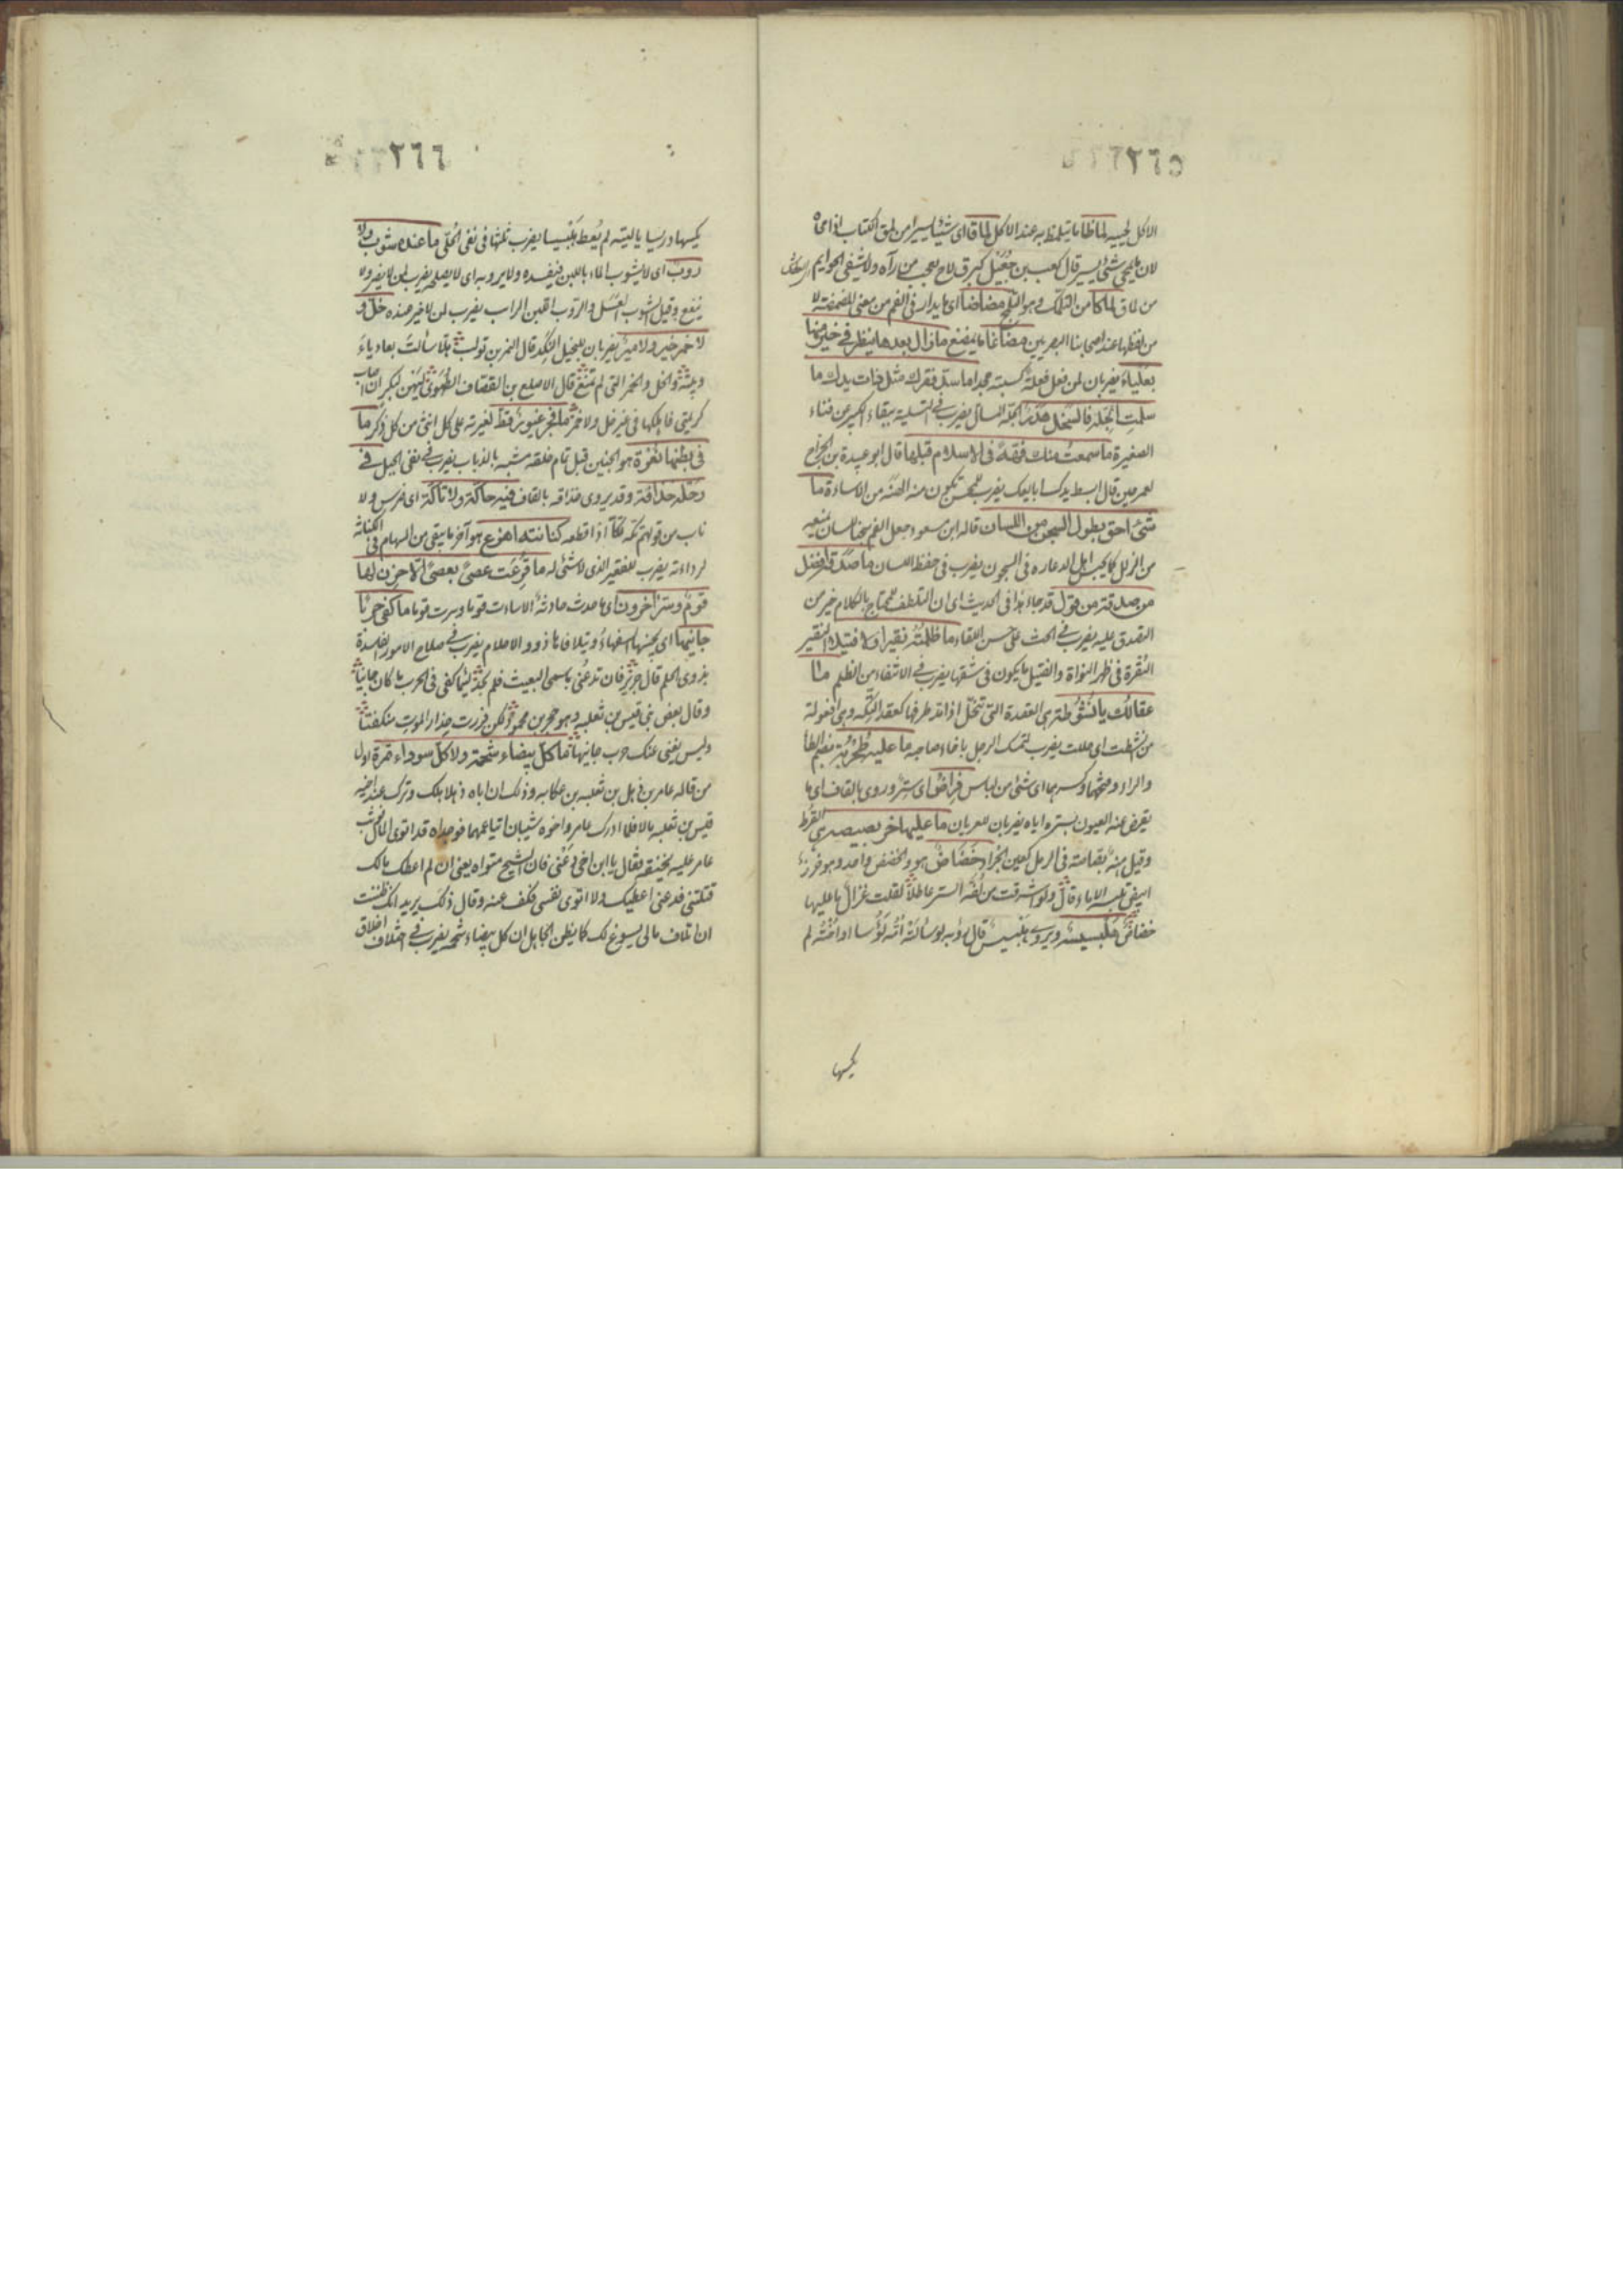 ٢٦٥
الاكل لجيه لماظا ما يتلمظ به عند الاكل لماقا اى شيئا يسيرا من لمق الكتاب اذا محاه
لان ما يمحى شئ يسير قال كعب بن جعيل كبرق لاح يعجب من رآه ولا يشفى الحوايم
من لماق لماكا من التلمك وهو التلمج مضاضا اى ما يدار فى الفم من معنى المضمضة لا
من لفظها عند اصحابنا البصريين مضاغا ما يمضغ ما زال بعدها ينظر فى خير منها
بعلياء يضربان لمن فعل فعلة كسبته مجدا ما سد فقرك مثل ذات يدك ما
سلمت الجلة فالسخل هدر الجلة المسان يضرب فى التسلية ببقاء الكبير عن فناء
الصغيرة ما سمعت منك فهة فى الاسلام قبلها قال ابو عبيدة بن الجراح
لعمر حين قال ابسط يدك ابايعك يضرب للمحسن تكون منه الهنة من الاساءة ما
شئ احق بطول السجن من اللسان قاله ابن مسعود جعل الفم سجنا للسان يمنعه
من الزلل كما يحبس اهل الدعاره فى السجون يضرب فى حفظ اللسان ما صدقة افضل
من صدقة من قول قد جاء هذا فى الحديث اى ان التلطف للمحتاج بالكلام خير من
التصدق عليه يضرب فى الحث على حسن اللقاء ما ظلمته نقيرا ولا فتيلا النقير
النقرة فى ظهر النواة والفتيل ما يكون فى شقها يضرب فى الانتفاء من الظلم ما
عقالك بانشوطة هى العقدة التى تنحل اذا مد طرفها كعقد التكه وهى افعولة
من نشطت اى حللت يضرب لتمسك الرجل باخاء صاحبه ما عليه طحربة بضم الطاء
والراء وفتحهما وكسرهما اى شئ من لباس فراض اى ستر وروى بالقاف اى ما
يقرض عنه العيون بستره اياه يضربان للعريان ما عليها خربصيصة هى القرط
وقيل هنة بقامته فى الرمل كعين الجراد خضاض هو والخضض واحد وهو خرز
ابيض تلبسه الاماء قال ولو اشرقت من كفة الستر عاطلا لقلت غزال ما عليها
خضاض هلبسيسة ويروى هلبسيس قال رؤبه لو سألته امه لؤسا او اخته لم
يكسها
٢٦٦
يكسها دريسا يا ليته لم يعط هلبسيسا يضرب ثلثها فى نفى الحلى ما عنده شوب ولا
روب اى لا يشوب الماء باللبن فيفسده ولا يروبه اى لا يصلحه يضرب لمن لا يضر ولا
ينفع وقيل الشوب العسل والروب اللبن الرائب يضرب لمن لا خير عنده خل و
لا خمر خير ولا مير يضربان للبخيل النكد قال النمر بن تولب هلا سألت بعادياء
وبيته والخل والخمر التى لم تمنع قال الاصلع بن القصاف الطهوى ليهن لبكر ان اصاب
كريتى فاهلكها فى غير خل ولا خمر ما فجر غيور قط لغيرته على كل انثى من كل ذكر ما
فى بطنها نغرة هو الجنين قبل تمام خلقه مشبه بالذباب يضرب فى نفى الحبل فى
رحله حذافة وقد يروى حذاقه بالقاف فيه حاكة ولا تاكة اى ضرس ولا
ناب من قولهم تكه تكا اذا قطعه كنانته اهزع هو آخر ما يبقى من السهام فى الكنانة
لرداءته يضرب للفقير الذى لا شئ له ما قرعت عصى بعصى الا حزن لها
قوم وسر آخرون اى ما حدث حادثة الا ساءت قوما وسرت قوما ما كفى حربا
جانيها اى يجنيها السفهاء ويتلافاها ذوو الاحلام يضرب فى صلاح الامور الفاسدة
بذوى الحلم قال جرير فان تدعنى باسمى البعيث فلم تجد لئيما كفى فى الحرب ما كان جانيا
وقال بعض بنى قيس بن ثعلبه وهو حجر بن محمود لكن فررت حذار الموت منكفتا
وليس يغنى عنك حرب جانيها ما كل بيضاء شحمة ولا كل سوداء تمرة اول
من قاله عامر بن ذهل بن ثعلبه بن عكابه وذلك ان اباه ذهلا هلك وترك عند اخيه
قيس بن ثعلبه مالا فلما ادرك عامر واخوه شيبان اتيا عمهما فوجداه قد اتوى المال فوثب
عامر عليه يخنقه فقال يا ابن اخى دعنى فان الشيخ متواه يعنى ان لم اعطك مالك
قتلتنى فدعنى اعطيك ولا اتوى نفسى فكف عنه وقال ذلك يريد انك ظننت
ان اتلاف مالى يسوغ لك كما يظن الجاهل ان كل بيضاء شحمه يضرب فى اختلاف اخلاق